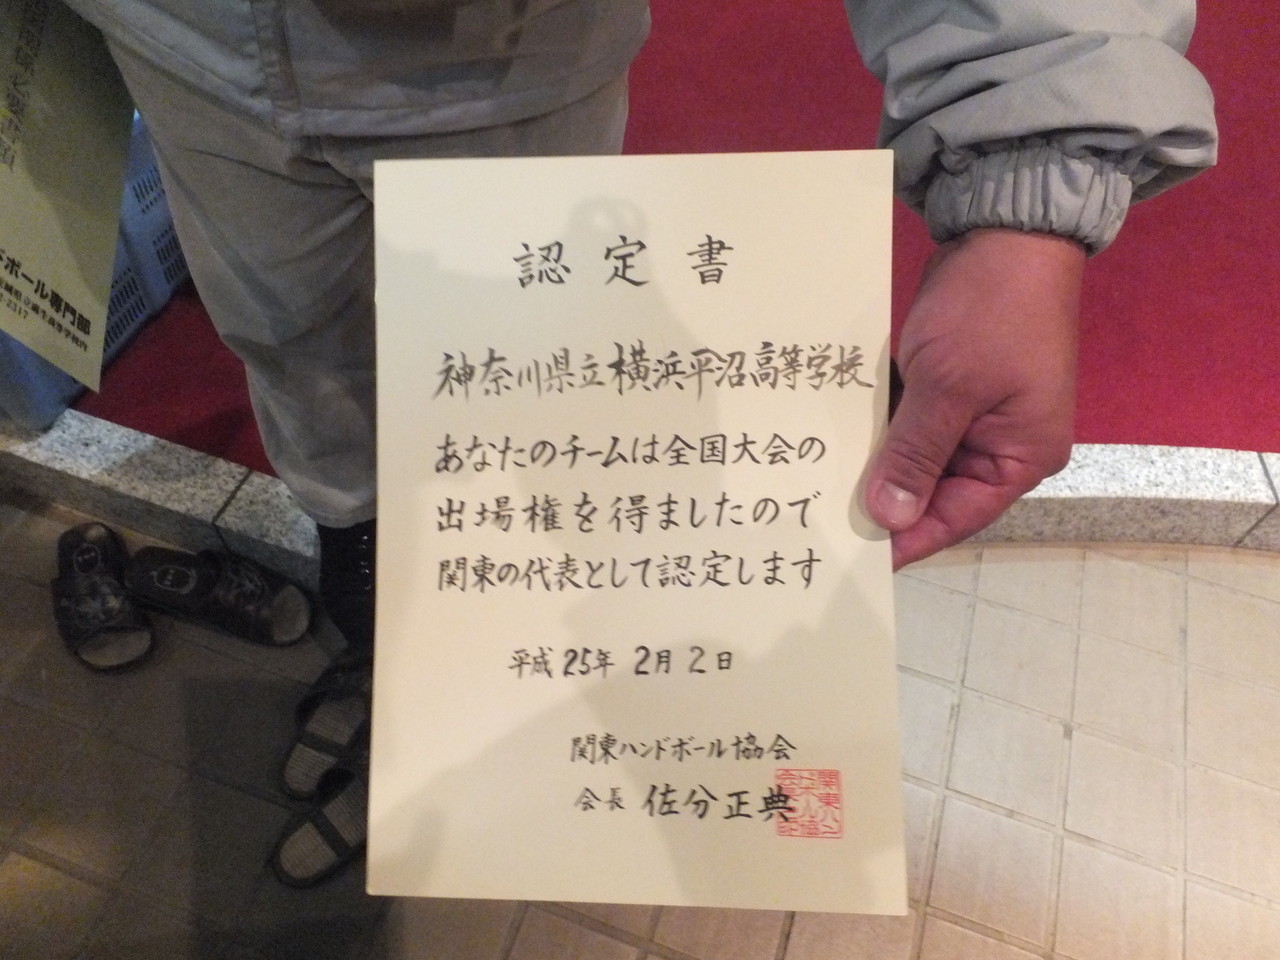 認定書
神奈川県立横浜平沼高等学校
あなたのチームは全国大会の
出場権を得ましたので
関東の代表として認定します
平成25年 2月 2日
関東ハンドボール協会
会長 佐分正典
関東ハン
ドボール協
ドボール専門部